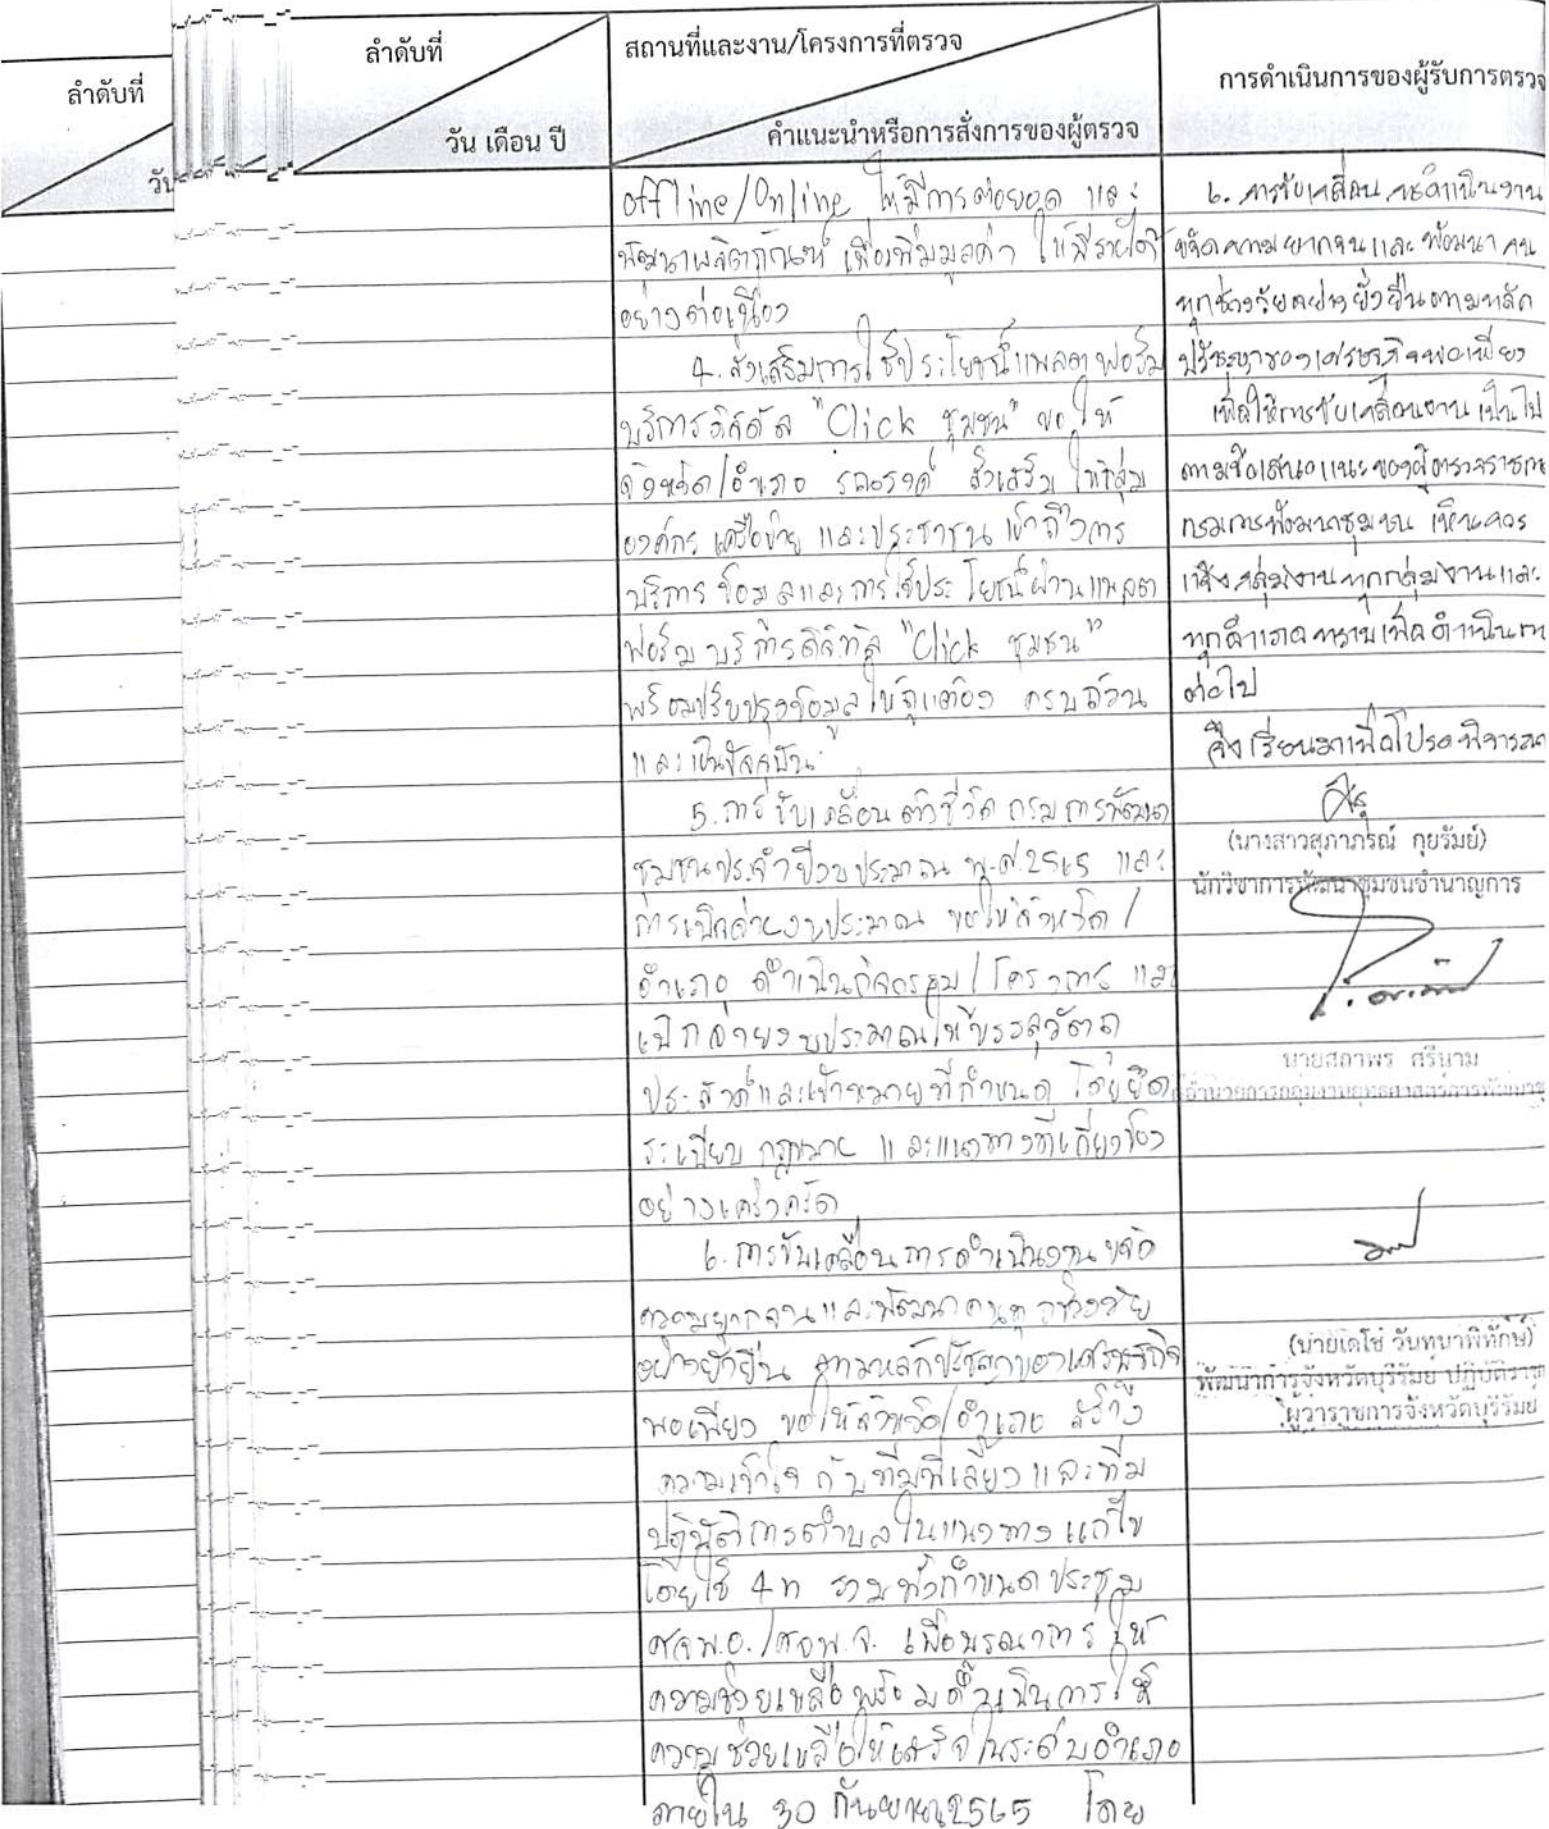 ลำดับที่
วัน
ลำดับที่
วัน เดือน ปี
สถานที่และงาน/โครงการที่ตรวจ
คำแนะนำหรือการสั่งการของผู้ตรวจ
การดำเนินการของผู้รับการตรวจ
offline/Online ให้มีการต่อยอด และ
พัฒนาผลิตภัณฑ์ เพื่อเพิ่มมูลค่า ให้มีรายได้
อย่างต่อเนื่อง
4. ส่งเสริมการใช้ประโยชน์แพลตฟอร์ม
บริการดิจิตัล "Click ชุมชน" ขอให้
จังหวัด/อำเภอ รณรงค์ ส่งเสริม ให้กลุ่ม
องค์กร เครือข่าย และประชาชน เข้าถึงการ
บริการ ข้อมูลและการใช้ประโยชน์ผ่านแพลต
ฟอร์มบริการดิจิทัล "Click ชุมชน"
พร้อมปรับปรุงข้อมูลให้ถูกต้อง ครบถ้วน
และเป็นปัจจุบัน
5. การขับเคลื่อนตัวชี้วัด กรมการพัฒนา
ชุมชนประจำปีงบประมาณ พ.ศ.2565 และ
การเบิกจ่ายงบประมาณ ขอให้จังหวัด/
อำเภอ ดำเนินกิจกรรม/โครงการ และ
เบิกจ่ายงบประมาณให้บรรลุวัตถุ
ประสงค์และเป้าหมายที่กำหนด โดยยึด
ระเบียบ กฎหมาย และแนวทางที่เกี่ยวข้อง
อย่างเคร่งครัด
6. การขับเคลื่อนการดำเนินงานขจัด
ความยากจนและพัฒนาคนทุกช่วงวัย
อย่างยั่งยืน ตามหลักปรัชญาของเศรษฐกิจ
พอเพียง ขอให้จังหวัด/อำเภอ สร้าง
ความเข้าใจ กับทีมพี่เลี้ยงและทีม
ปฏิบัติการตำบลในแนวทางแก้ไข
โดยใช้ 4 ท รวมทั้งกำหนดประชุม
ศจพ.อ./ศจพ.จ. เพื่อบูรณาการให้
ความช่วยเหลือพร้อมดำเนินการให้
ความช่วยเหลือให้เสร็จในระดับอำเภอ
ภายใน 30 กันยายน 2565 โดย
6. การขับเคลื่อนการดำเนินงาน
ขจัดความยากจนและพัฒนาคน
ทุกช่วงวัยอย่างยั่งยืนตามหลัก
ปรัชญาของเศรษฐกิจพอเพียง
เพื่อให้การขับเคลื่อนงานเป็นไป
ตามข้อเสนอแนะของผู้ตรวจราชการ
กรมการพัฒนาชุมชน เห็นควร
แจ้งกลุ่มงานทุกกลุ่มงานและ
ทุกอำเภอทราบเพื่อดำเนินการ
ต่อไป
จึงเรียนมาเพื่อโปรดพิจารณา
(นางสาวสุภาภรณ์ กุยรัมย์)
นักวิชาการพัฒนาชุมชนชำนาญการ
นายสถาพร ศรีนาม
ผู้อำนวยการกลุ่มงานยุทธศาสตร์การพัฒนาชุ
(นายเดโช วันทนาพิทักษ์)
พัฒนาการจังหวัดบุรีรัมย์ ปฏิบัติราช
ผู้ว่าราชการจังหวัดบุรีรัมย์